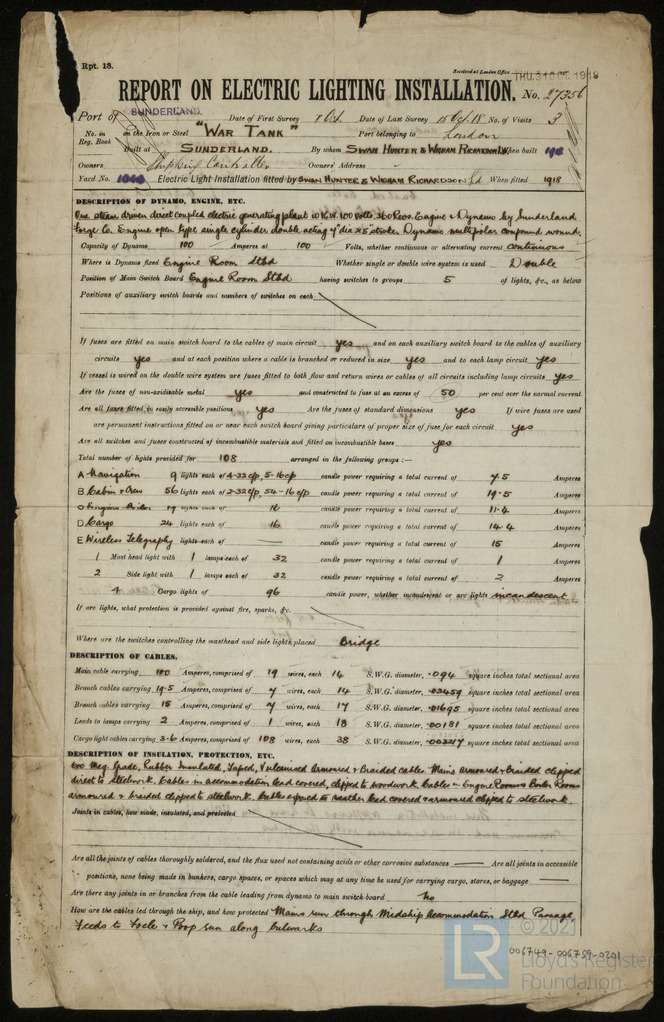 Rpt. 13.
Received at London Office THU. 31 OCT. 1918
REPORT ON ELECTRIC LIGHTING INSTALLATION. No. 27356
Port of SUNDERLAND. Date of First Survey Oct. Date of Last Survey 15 Oct. 18 No. of Visits 3
No. in Reg. Book on the Iron or Steel "WAR TANK" Port belonging to London
Built at SUNDERLAND. By whom SWAN HUNTER & WIGHAM RICHARDSON Ld When built 1918
Owners Shipping Controller Owners' Address -
Yard No. Electric Light Installation fitted by SWAN HUNTER & WIGHAM RICHARDSON Ld When fitted 1918
DESCRIPTION OF DYNAMO, ENGINE, ETC.
One steam driven direct coupled electric generating plant 10 K.W. 100 Volts. 360 Revs. Engine & Dynamo by Sunderland
Forge Co. Engine open type single cylinder double acting 7" dia x 5" stroke. Dynamo multipolar compound wound.
Capacity of Dynamo 100 Amperes at 100 Volts, whether continuous or alternating current continuous
Where is Dynamo fixed Engine Room Stbd Whether single or double wire system is used Double
Position of Main Switch Board Engine Room Stbd having switches to groups 5 of lights, &c., as below
Positions of auxiliary switch boards and numbers of switches on each
If fuses are fitted on main switch board to the cables of main circuit yes and on each auxiliary switch board to the cables of auxiliary
circuits yes and at each position where a cable is branched or reduced in size yes and to each lamp circuit yes
If vessel is wired on the double wire system are fuses fitted to both flow and return wires or cables of all circuits including lamp circuits yes
Are the fuses of non-oxidizable metal yes and constructed to fuse at an excess of 50 per cent over the normal current
Are all fuses fitted in easily accessible positions yes Are the fuses of standard dimensions yes If wire fuses are used
are permanent instructions fitted on or near each switch board giving particulars of proper size of fuse for each circuit yes
Are all switches and fuses constructed of incombustible materials and fitted on incombustible bases yes
Total number of lights provided for 108 arranged in the following groups :—
A Navigation 9 lights each of 4-32 c/p, 5-16 c/p candle power requiring a total current of 7.5 Amperes
B Cabin & Crew 56 lights each of 2-32 c/p, 54-16 c/p candle power requiring a total current of 19.5 Amperes
C Engine & Boiler 19 lights each of 16 candle power requiring a total current of 11.4 Amperes
D Cargo 24 lights each of 16 candle power requiring a total current of 14.4 Amperes
E Wireless Telegraphy lights each of — candle power requiring a total current of 15 Amperes
1 Mast head light with 1 lamps each of 32 candle power requiring a total current of 1 Amperes
2 Side light with 1 lamps each of 32 candle power requiring a total current of 2 Amperes
4 Cargo lights of 96 candle power, whether incandescent or arc lights incandescent
If arc lights, what protection is provided against fire, sparks, &c.
Where are the switches controlling the masthead and side lights placed Bridge
DESCRIPTION OF CABLES.
Main cable carrying 100 Amperes, comprised of 19 wires, each 14 S.W.G. diameter, .094 square inches total sectional area
Branch cables carrying 19.5 Amperes, comprised of 7 wires, each 14 S.W.G. diameter, .03459 square inches total sectional area
Branch cables carrying 15 Amperes, comprised of 7 wires, each 17 S.W.G. diameter, .01695 square inches total sectional area
Leads to lamps carrying 2 Amperes, comprised of 1 wires, each 18 S.W.G. diameter, .00181 square inches total sectional area
Cargo light cables carrying 3.6 Amperes, comprised of 108 wires, each 38 S.W.G. diameter, square inches total sectional area
DESCRIPTION OF INSULATION, PROTECTION, ETC.
600 Meg. Grade, Rubber Insulated, Taped, Vulcanised Armoured & Braided cables. Mains armoured & braided clipped
direct to steelwork. Cables in accommodation lead covered, clipped to woodwork. Cables in Engine Rooms & Boiler Rooms
armoured & braided clipped to steelwork. Cables exposed to weather lead covered & armoured clipped to steelwork.
Joints in cables, how made, insulated, and protected
Are all the joints of cables thoroughly soldered, and the flux used not containing acids or other corrosive substances — Are all joints in accessible
positions, none being made in bunkers, cargo spaces, or spaces which may at any time be used for carrying cargo, stores, or baggage —
Are there any joints in or branches from the cable leading from dynamo to main switch board No
How are the cables led through the ship, and how protected Mains run through Midship Accommodation Stbd Passage
Feeds to Focle & Poop run along bulwarks
© 2021
LR Lloyd's Register
Foundation
006749-006759-0201